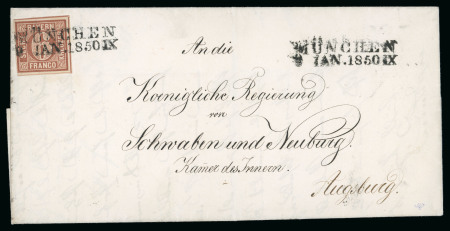 BAYERN
FRANCO
MÜNCHEN
9 JAN. 1850 IX
MÜNCHEN
9 JAN. 1850 IX
An die
Koenigliche Regierung
von
Schwaben und Neuburg.
Kamer des Innern.
Augsburg.